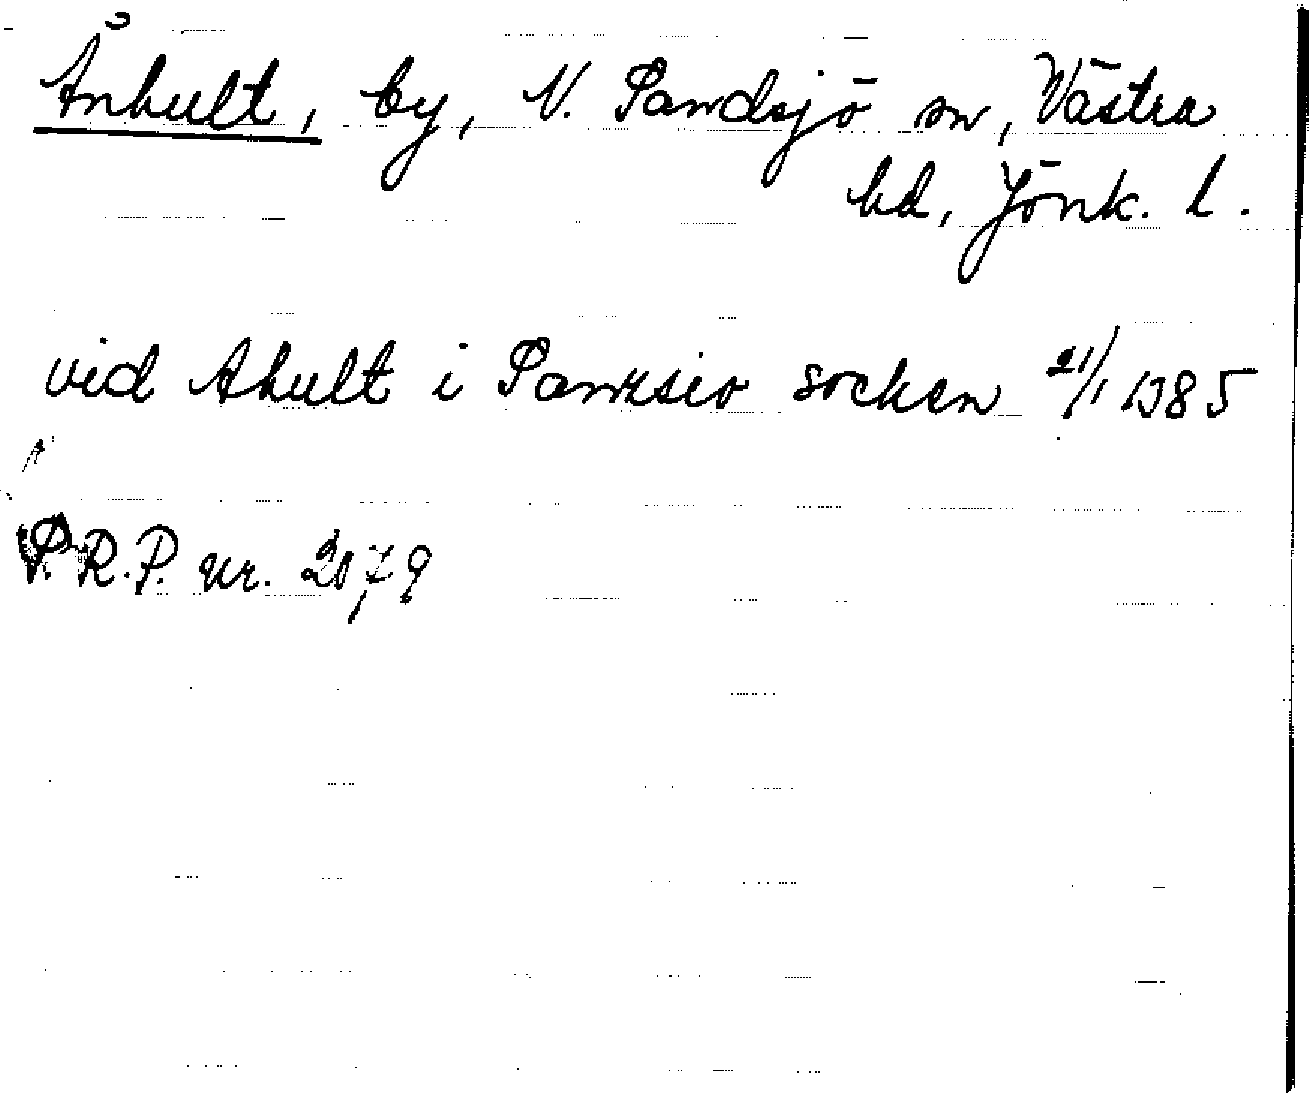 Ånhult, by, N. Sandsjö sn, Västra
hd, Jönk. l.
vid Ahult i Sanxsio socken 21/1 1385
S.R.P. nr. 2079